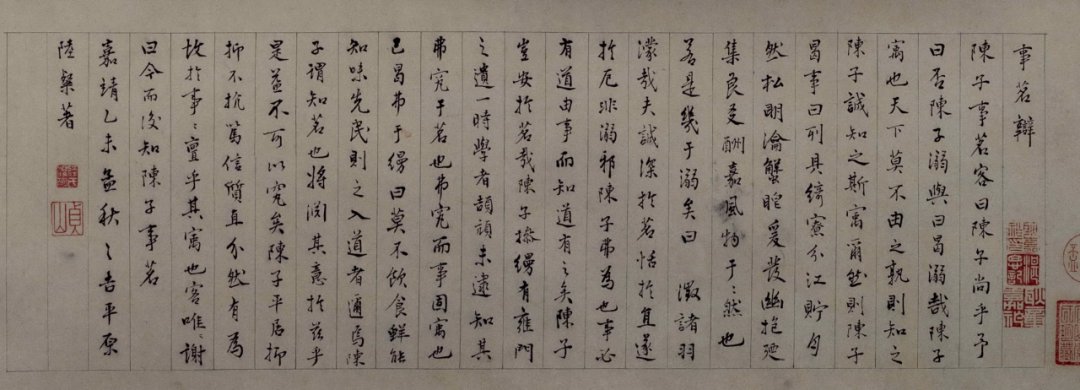 事茗辯
陳子事茗客曰陳子尚乎予
曰否陳子溺與曰曷溺哉陳子
寓也天下莫不由之孰則知之
陳子誠知之斯寓爾然則陳子
曷事曰列具綺寮分江貯月
然松明瀹蟹眼爰發幽抱延
集良友酬嘉風物于于然也
若是幾于溺矣曰 澂諸羽
濛哉夫誠深於茗恬於且遂
於厄非溺邪陳子弗為也事必
有道由事而知道有之矣陳子
豈安於茗哉陳子搽縵有雍門
之遺一時學者頡頏未逮知其
弗究于茗也弗究而事固寓也
已曷弗于縵曰莫不飲食鮮能
知味先民則之入道者邇焉陳
子謂知茗也將淵其意於茲乎
是蓋不可以究矣陳子平居抑
抑不抗篤信質直介然有為
故於事事亶乎其寓也客唯唯謝
曰今而後知陳子事茗
嘉靖乙未孟秋之吉平原
陸粲著
貞山